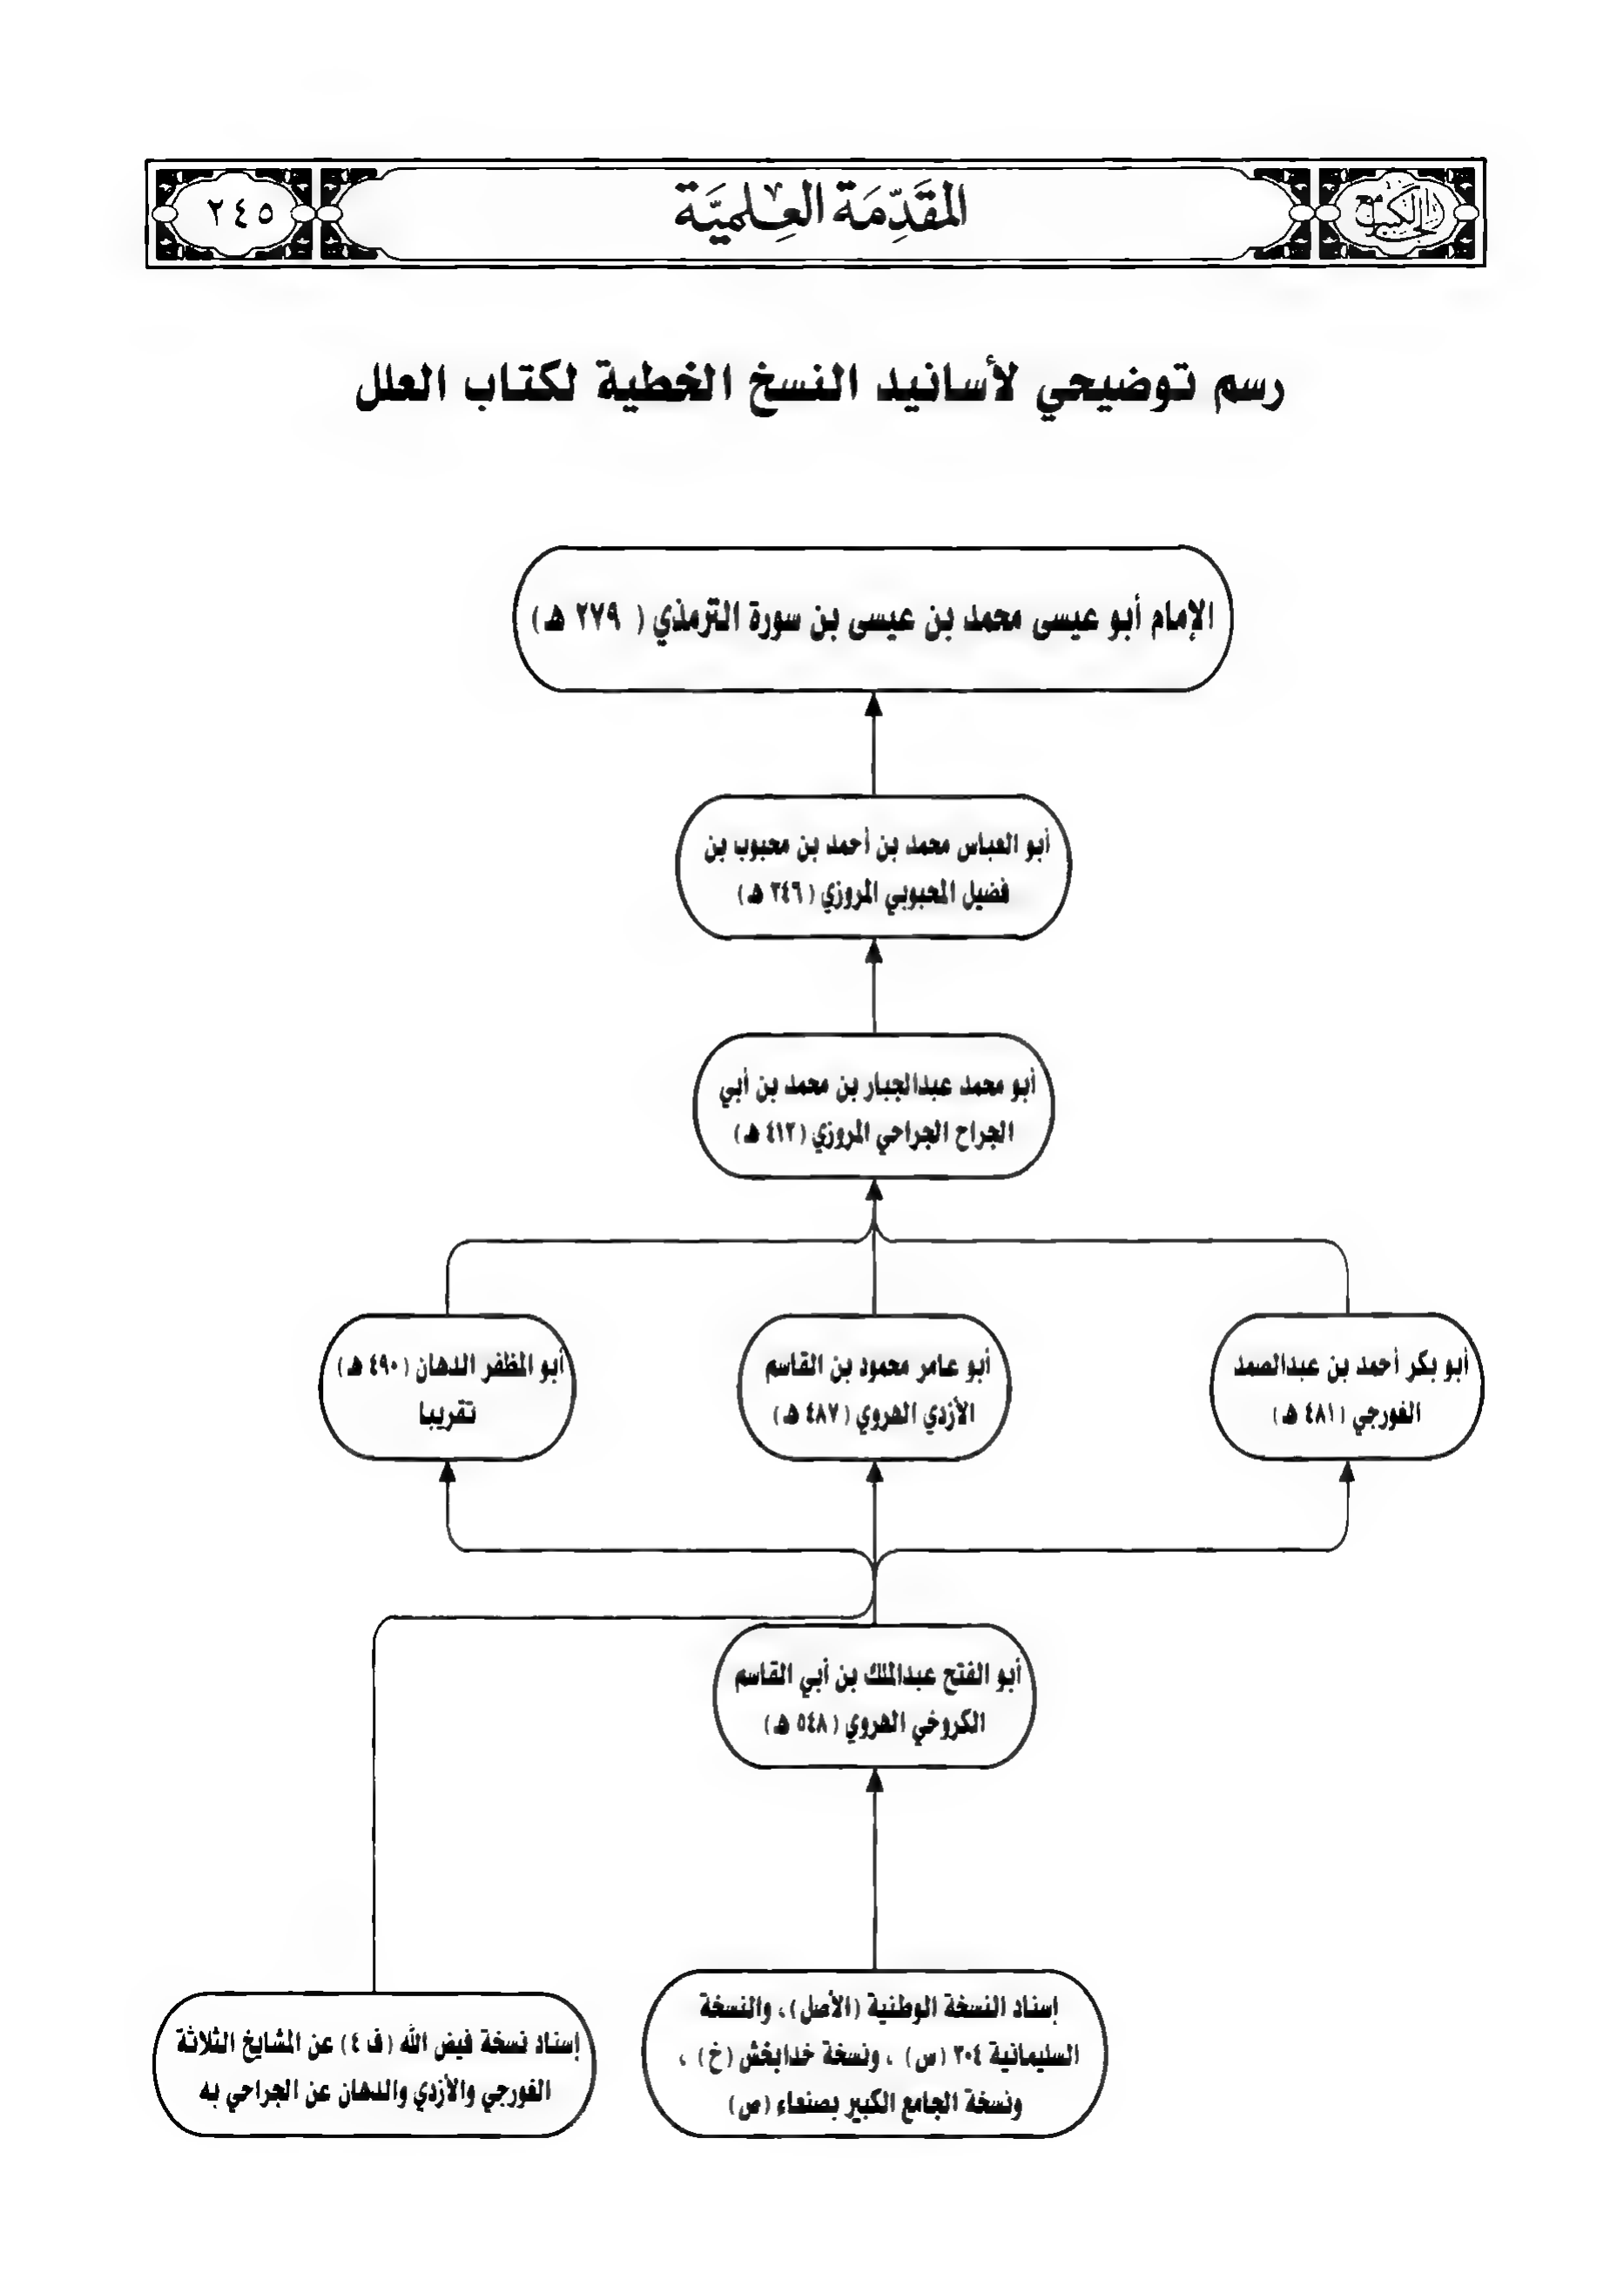 الجامع الكبير
المقَدِّمَة العِلميَّة
٢٤٥
رسم توضيحي لأسانيد النسخ الخطية لكتاب العلل
الإمام أبو عيسى محمد بن عيسى بن سورة الترمذي ( ٢٧٩ هـ)
أبو العباس محمد بن أحمد بن محبوب بن
فضيل المحبوبي المروزي (٣٤٦ هـ)
أبو محمد عبدالجبار بن محمد بن أبي
الجراح الجراحي المروزي (٤١٢ هـ)
أبو بكر أحمد بن عبدالصمد
الغورجي (٤٨١ هـ)
أبو عامر محمود بن القاسم
الأزدي الهروي (٤٨٧ هـ)
أبو المظفر الدهان (٤٩٠ هـ)
تقريبا
أبو الفتح عبدالملك بن أبي القاسم
الكروخي الهروي (٥٤٨ هـ)
إسناد النسخة الوطنية (الأصل)، والنسخة
السليمانية ٣٠٤ (س) ، ونسخة خدابخش (خ) ،
ونسخة الجامع الكبير بصنعاء (ص)
إسناد نسخة فيض الله (ف ٤) عن المشايخ الثلاثة
الغورجي والأزدي والدهان عن الجراحي به